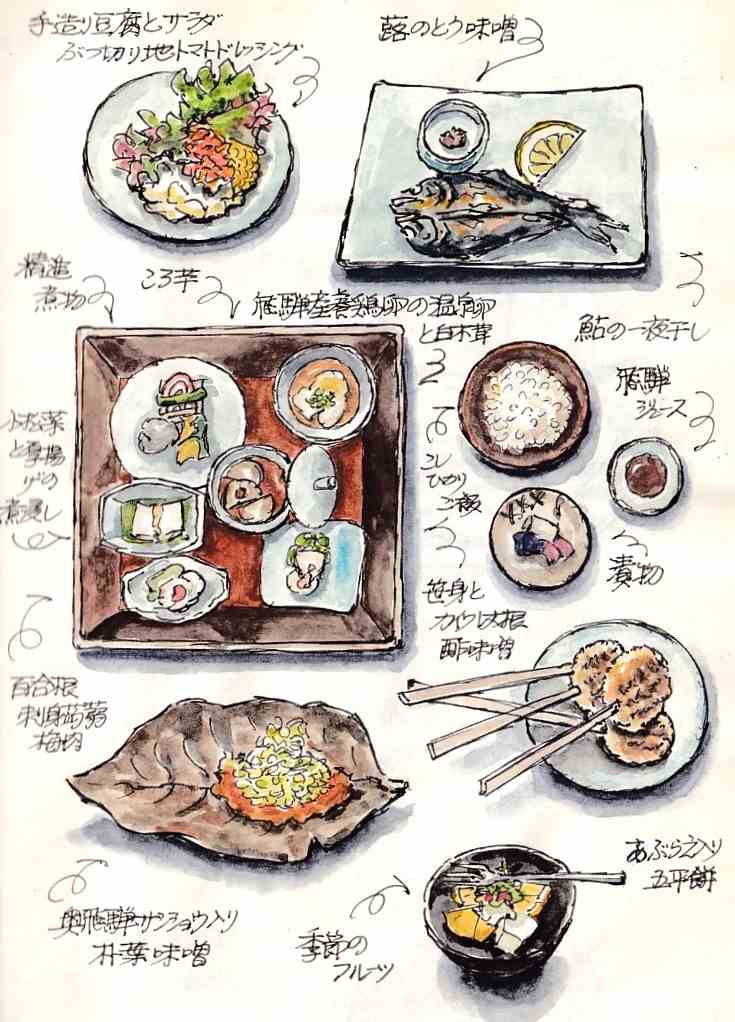 手造り豆腐とサラダ
ぶつ切り地トマトドレッシング
蕗のとう味噌
精進
煮物
ころ芋
飛騨産養鶏卵の温泉卵
と白木茸
鮎の一夜干し
飛騨
ジュース
小松菜
と厚揚
げの
煮浸し
コシ
ひかり
ご飯
漬物
笹身と
カイワレ大根
酢味噌
百合根
刺身蒟蒻
梅肉
奥飛騨サンショウ入り
朴葉味噌
季節の
フルーツ
あぶらえ入り
五平餅